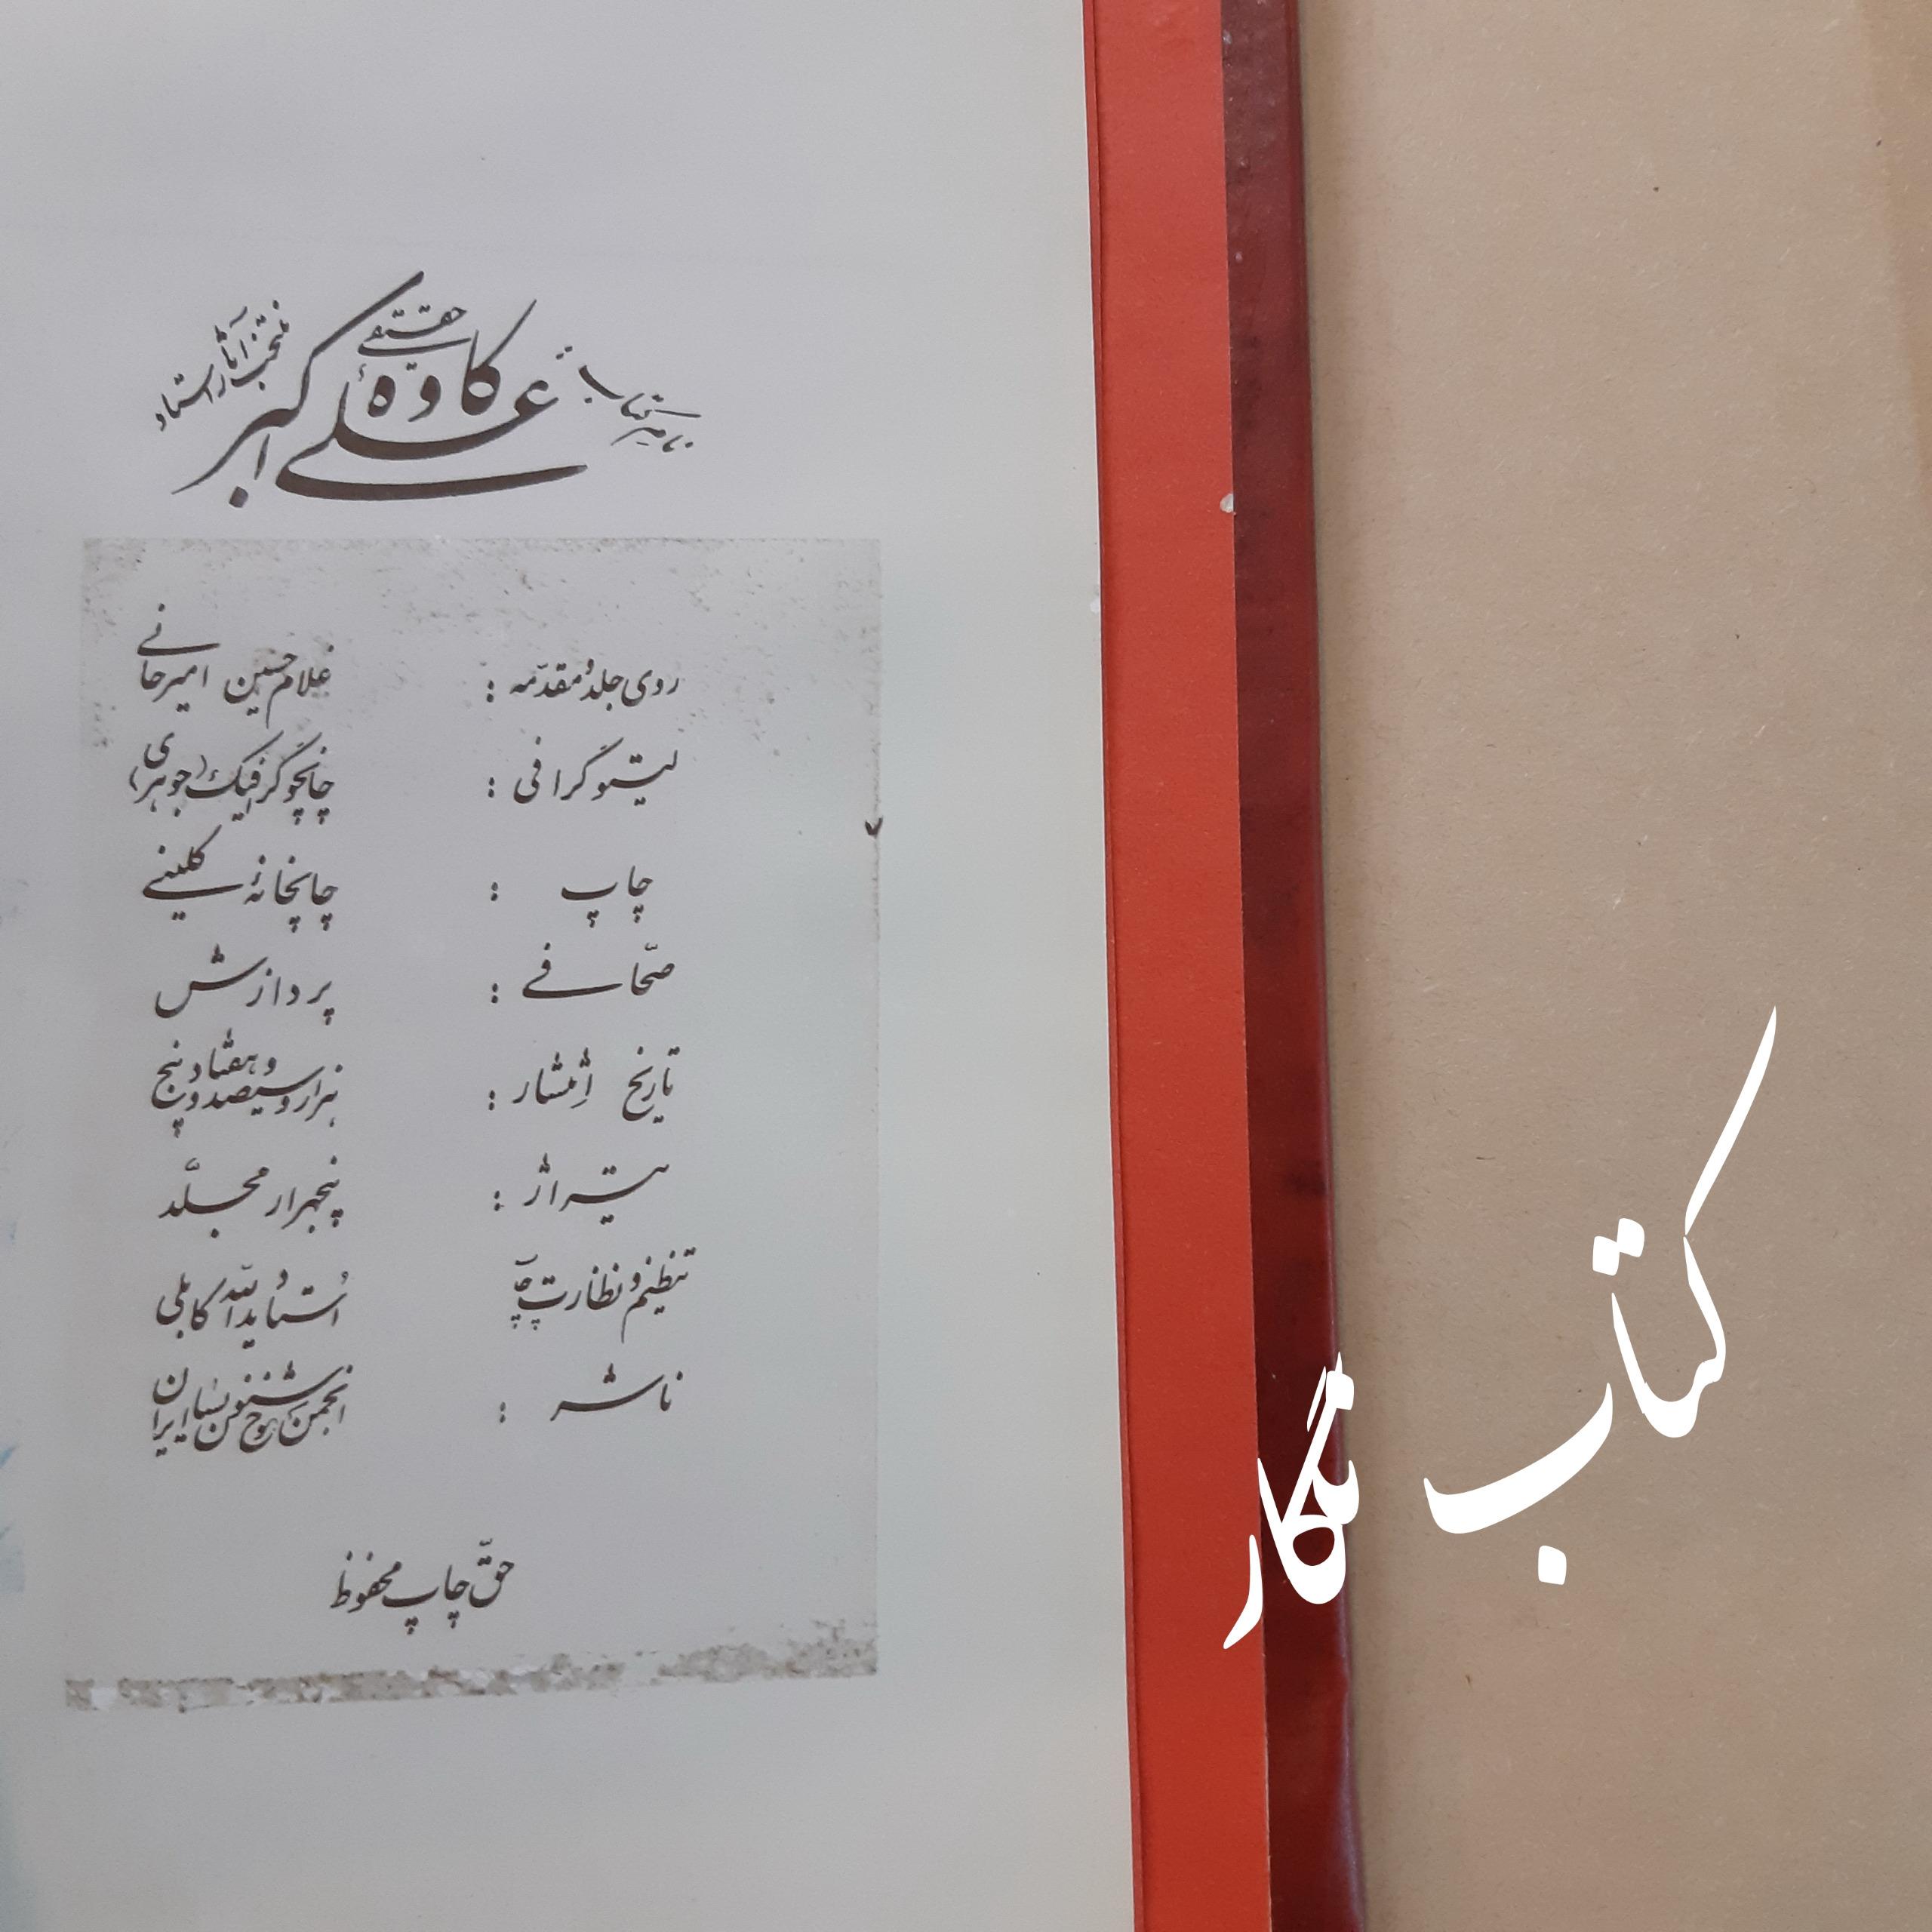 نام کتاب : منتخب آثار استاد علی اکبر کاوه حقیقی
روی جلد و مقدّمه : غلامحسین امیرخانی
لیتوگرافی : چاپخوگرافیک (جوهری)
چاپ : چاپخانهٔ کلینی
صحّافی : پردازش
تاریخ انتشار : هزار و سیصد و هفتاد و پنج
تیراژ : پنجهزار مجلّد
تنظیم و نظارت چاپ استاد یداللّه کابلی
ناشر : انجمن خوشنویسان ایران
حقّ چاپ محفوظ
کتاب نگار